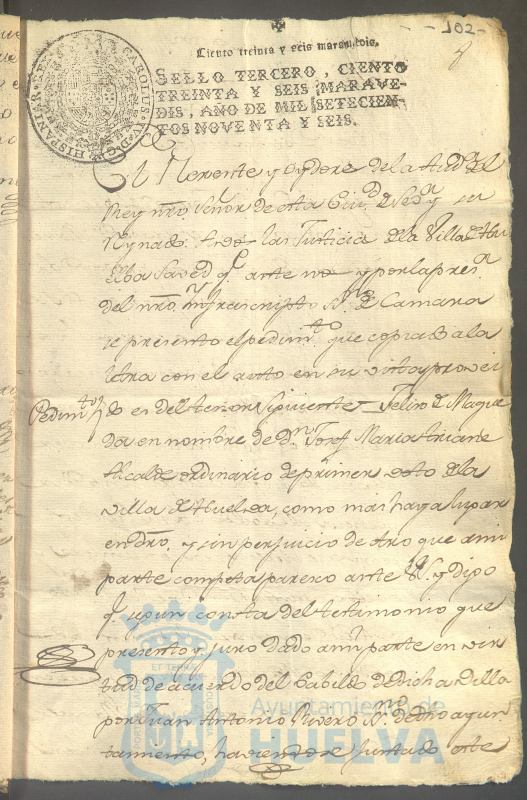 -102-
Ciento treinta y seis maravedis.
SELLO TERCERO, CIENTO
TREINTA Y SEIS MARAVE-
DIS, AÑO DE MIL SETECIEN-
TOS NOVENTA Y SEIS.
CAROLUS IV D G HISPANIAR REX
El Rexente y Oydores de la Audª del
Rey nro Señor de esta Ciud de Sevª y su
las Justicia de la Villa de Hu
elba saved q ante nos y por la pres
del nro infrascripto Sno de Camara
se presento el pedimto que copiado a la
letra con el auto en su vista provei
Pedimto
do es del tenor siguiente Felix de Maque
da en nombre de Dn Josef Maria
Alcalde ordinario de primer voto de la
villa de Huelva, como mas haya lugar
en dro, y sin perjuicio de otro que a mi
parte competa parezco ante V.S. y digo
q segun consta del testimonio que
presento y juro dado a mi parte en vir
tud de acuerdo del Cabildo de dicha villa
por Juan Antonio Rivero Sno de dho ayun
tamiento, haviendose juntado este
ET TERRÆ
Ayuntamiento de
HUELVA